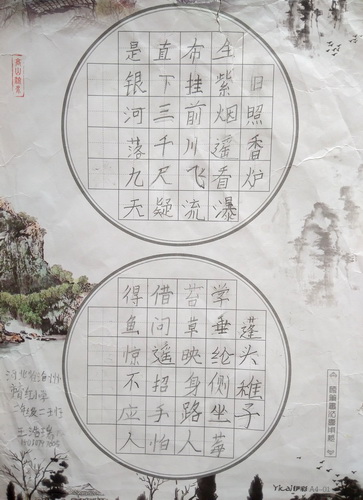 旧照香炉
全紫烟遥看瀑
布挂前川飞流
直下三千尺疑
是银河落九天
蓬头稚子
学垂纶侧坐
苔草映身路人
借问遥招手怕
得鱼惊不应人
河北省沧州
A4-01